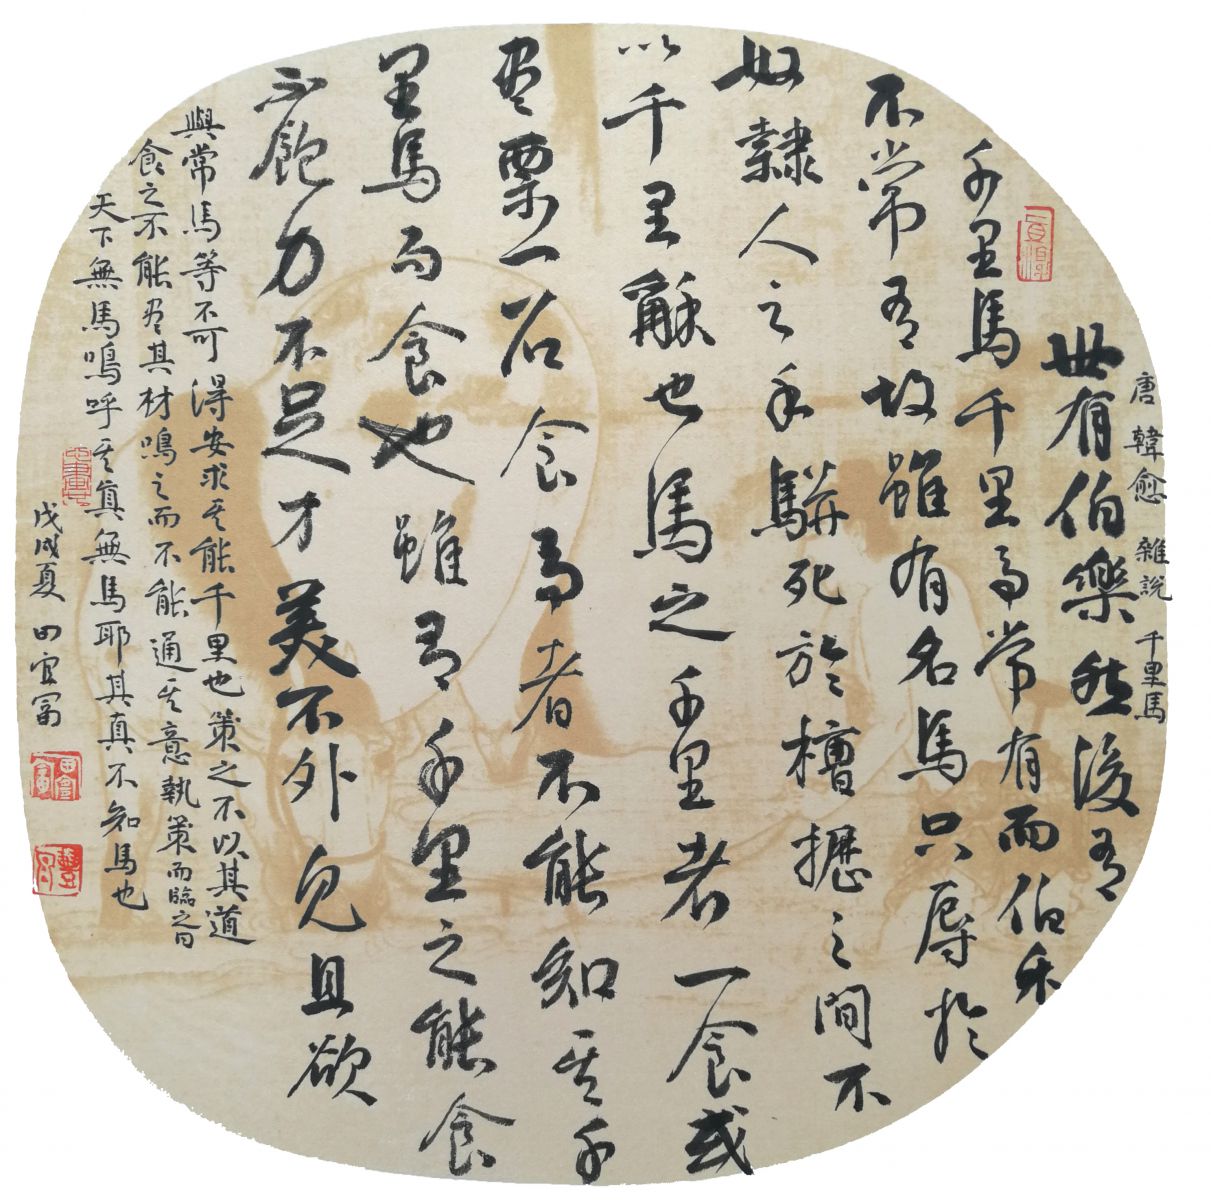 唐 韓愈 雜說 千里馬
世有伯樂然後有
千里馬千里馬常有而伯乐
不常有故雖有名馬只辱於
奴隸人之手駢死於槽櫪之間不
以千里稱也馬之千里者一食或
尽粟一石食馬者不能知其千
里馬而食也雖有千里之能食
不飽力不足才美不外見且欲
與常馬等不可得安求其能千里也策之不以其道
食之不能尽其材鳴之而不能通其意執策而臨之曰
天下無馬嗚呼其真無馬耶其真不知馬也
戊戌夏 田宜富